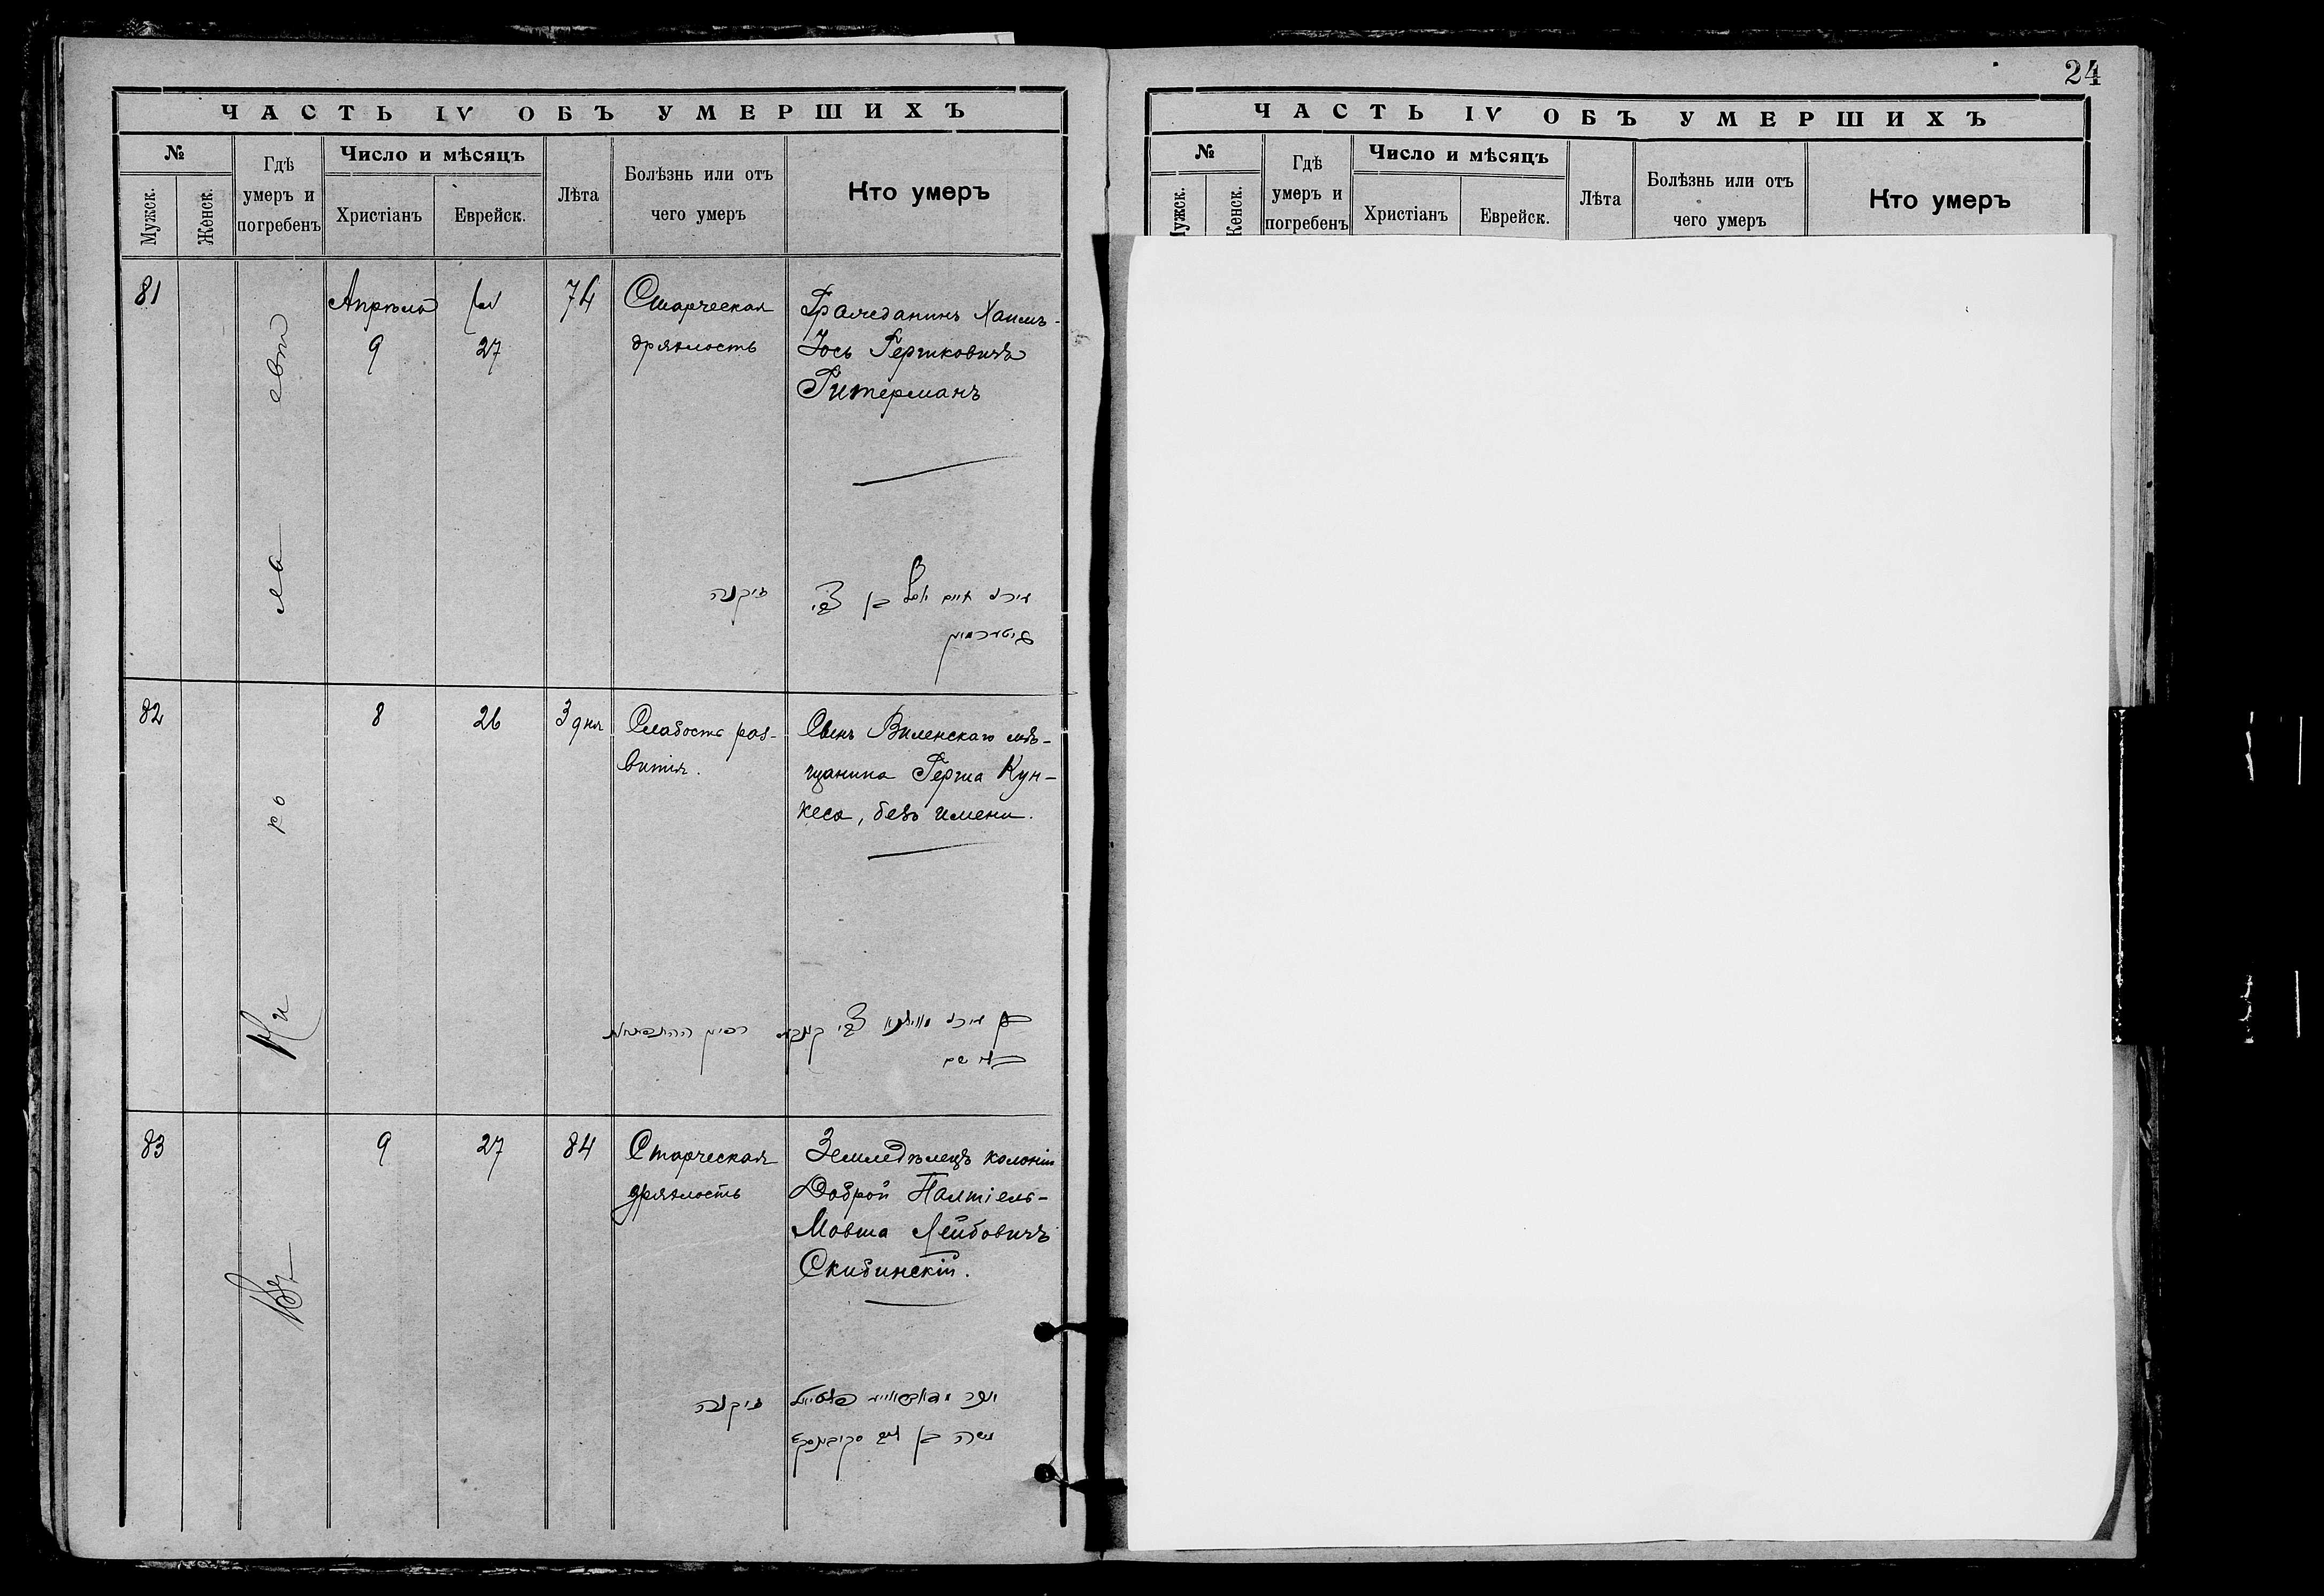 24
ЧАСТЬ IV ОБЪ УМЕРШИХЪ
№
Мужск.
Женск.
Гдѣ умеръ и погребенъ
Число и мѣсяцъ
Христіанъ
Еврейск.
Лѣта
Болѣзнь или отъ чего умеръ
Кто умеръ
Въ Николаевѣ
81
Апрѣля
9
27
74
Старческая
дряхлость
Гражданинъ Хаимъ-
Іось Гершковичъ
Гитерманъ
זיקנה
82
8
26
3 дня
Слабость раз-
витія.
Сынъ Виленскаго мѣ-
щанина Герша Кун-
кеса, безъ имени.
83
9
27
84
Старческая
дряхлость
Земледѣлецъ колоніи
Доброй Палтіель-
Мовша Лейбовичъ
Скибинскій.
זיקנה
משה בן ליב סקיבינסקי
ЧАСТЬ IV ОБЪ УМЕРШИХЪ
№
Мужск.
Женск.
Гдѣ умеръ и погребенъ
Число и мѣсяцъ
Христіанъ
Еврейск.
Лѣта
Болѣзнь или отъ чего умеръ
Кто умеръ